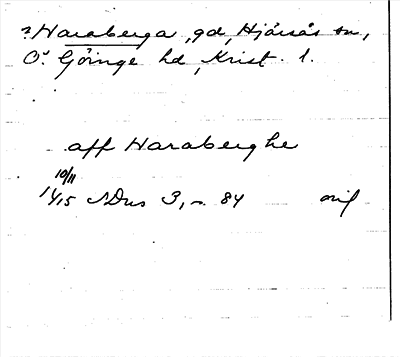 ? Haraberga, gd, Hjärsås sn,
Ö. Göinge hd, Krist. l.
aff Haraberghe
10/11
1415 SDns 3, s. 84 orig